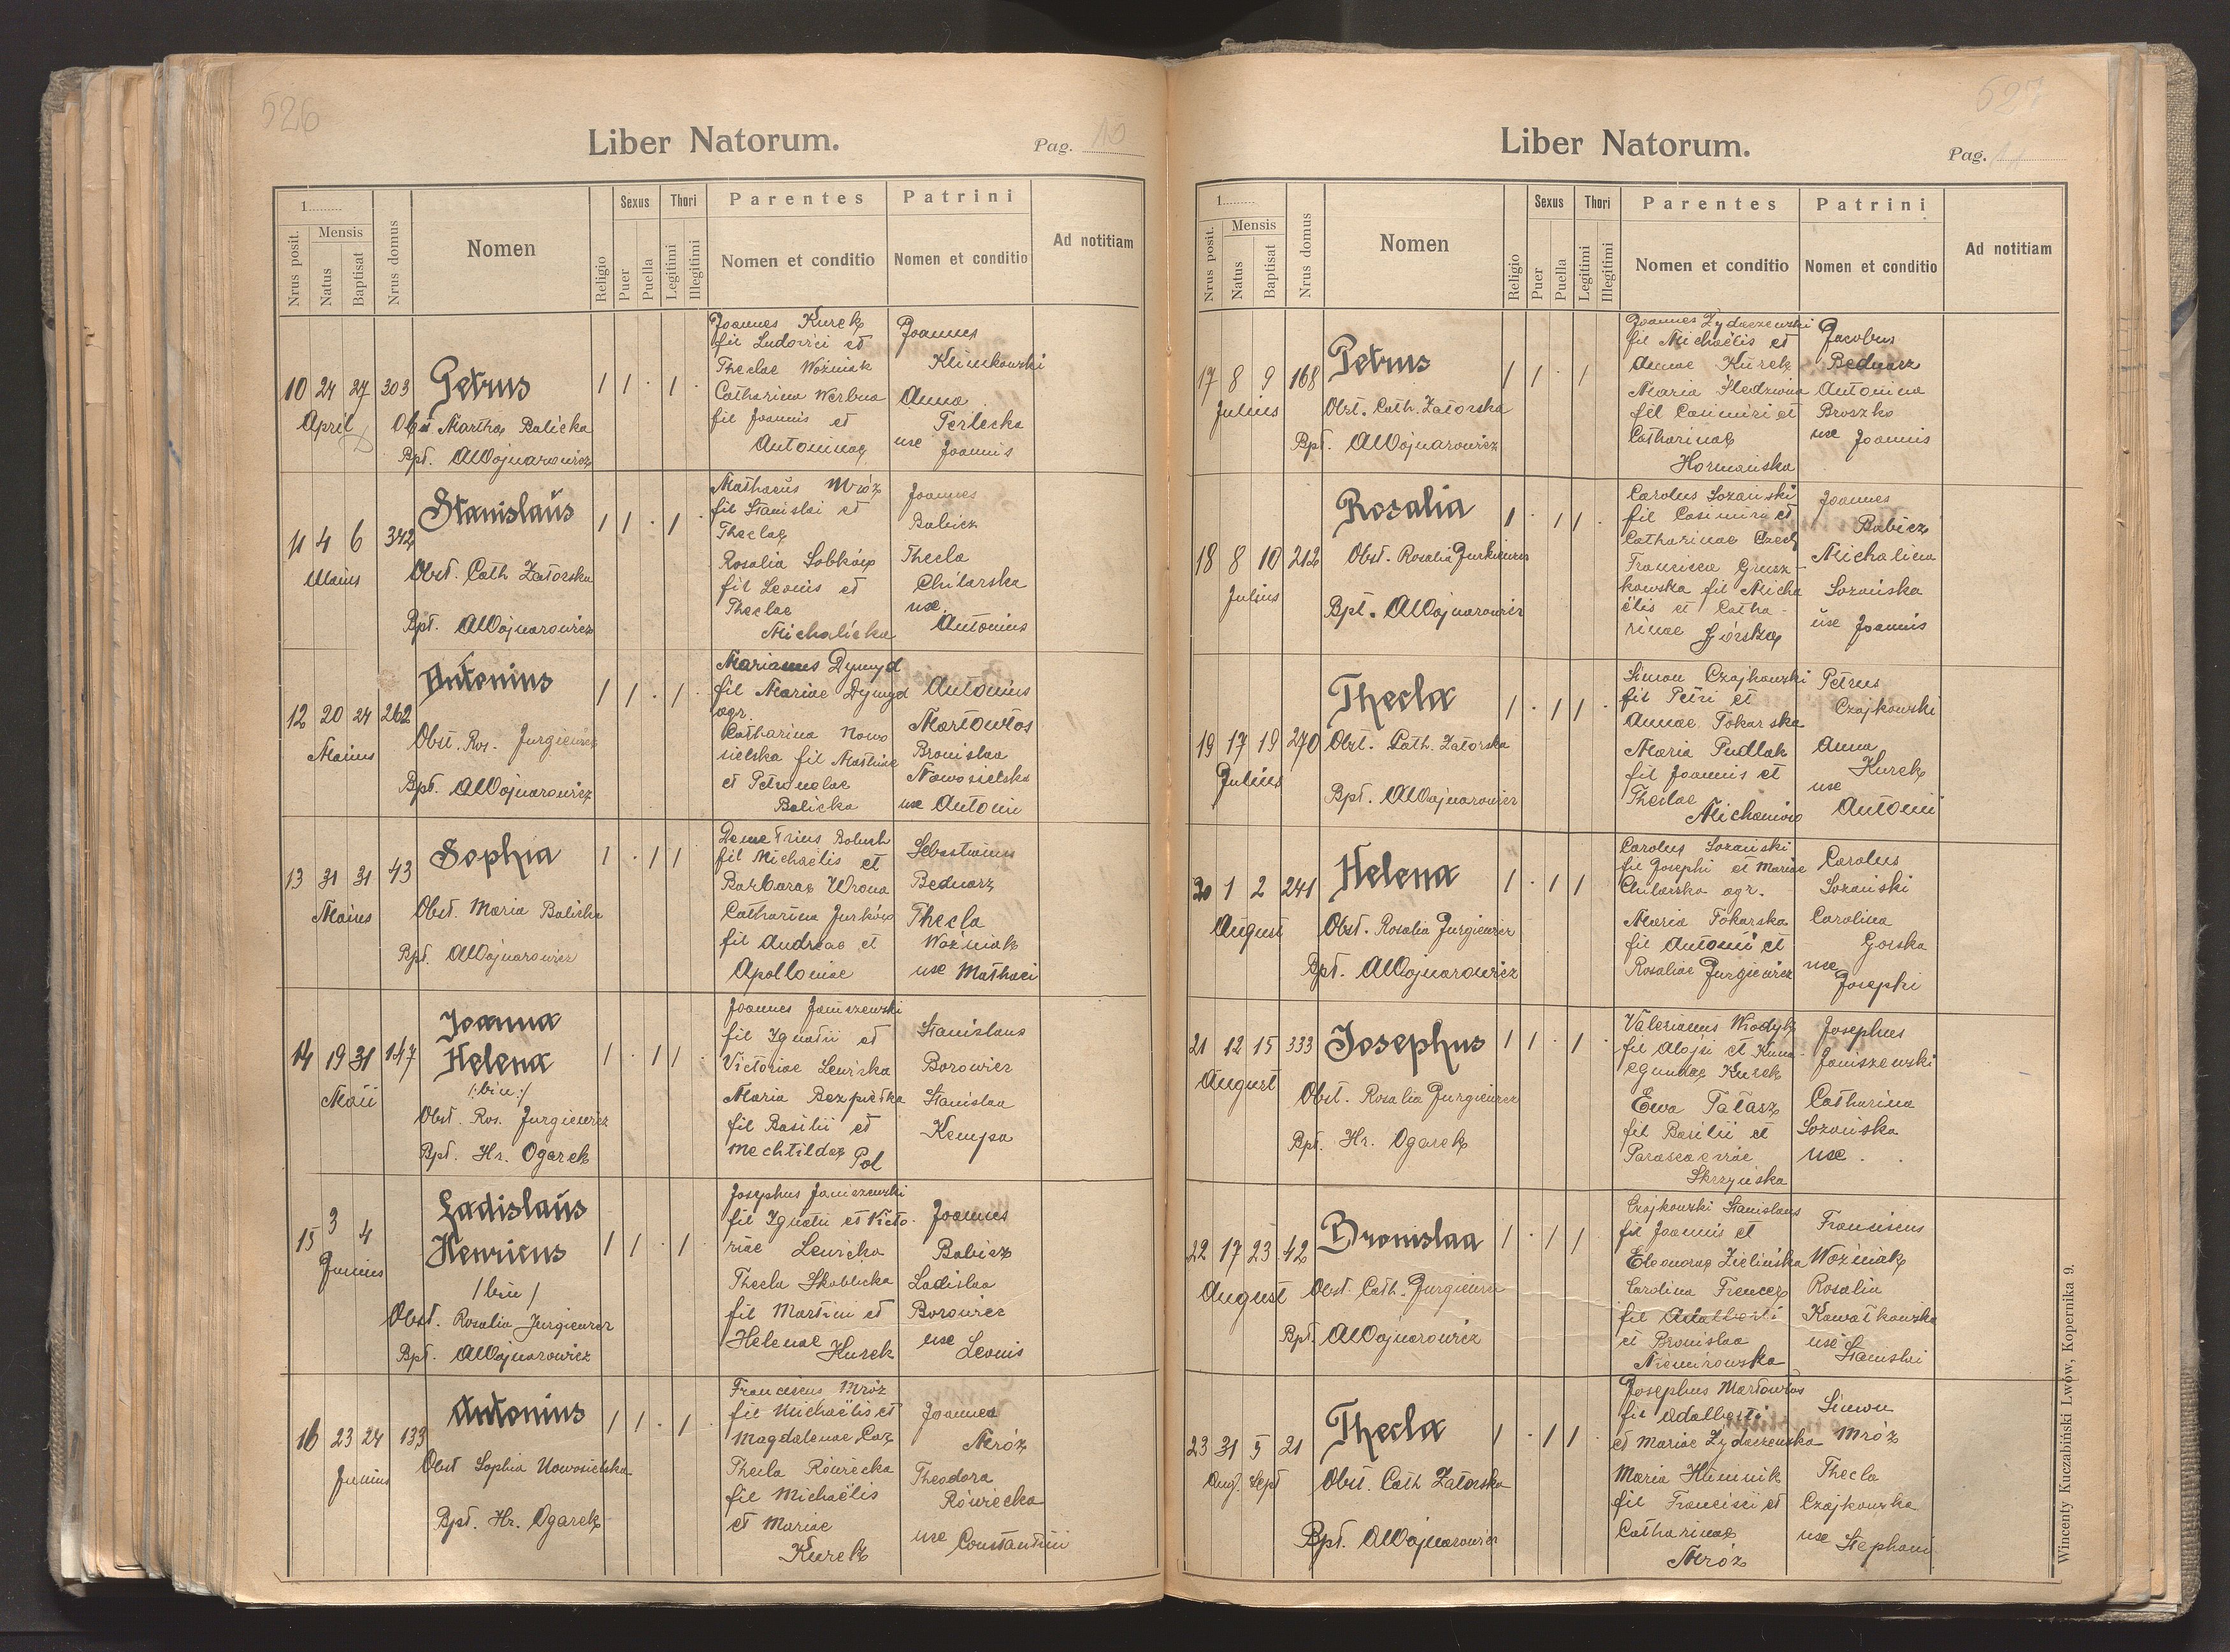 526
Liber Natorum.
Pag. 10
1
Nrus posit.
Mensis
Natus
Baptisat
Nrus domus
Nomen
Religio
Sexus
Puer
Puella
Thori
Legitimi
Illegitimi
Parentes
Nomen et conditio
Patrini
Nomen et conditio
Ad notitiam
10 24 27 303 Petrus 1 1 . 1 .
April
Martha Balicka
Bpt. AWojnarowicz
Joannes Kurek
fil Ludovici et
Theclae Woźniak
Catharina Werbna
fil Joannis et
Antoninae
Joannes
Klimkowski
Anna
Terlecka
use Joannis
11 4 6 342 Stanislaus 1 1 . 1 .
Maius
Obst. Cath Zatorska
Bpt. AWojnarowicz
Mathaeus Mróz
fil Stanislai et
Theclae
Rosalia Sobków
fil Leonis et
Theclae
Michalicka
Joannes
Babicz
Thecla
Chilarska
use
Antonius
12 20 24 262 Antonius 1 1 . 1 .
Maius
Obst. Ros. Jurgiewicz
Bpt. AWojnarowicz
Marianus Dymyd
fil Mariae Dymyd
agr.
Catharina Nowo
sielska fil Mathiae
et Petronelae
Balicka
Antonius
Martowłos
Bronislaa
Nowosielska
use Antoni
13 31 31 43 Sophia 1 . 1 1
Maius
Obst. Maria Balicka
Bpt. AWojnarowicz
Demetrius Boluch
fil Michaëlis et
Barbarae Wrona
Catharina Jurków
fil Andreae et
Apolloniae
Sebastianus
Bednarz
Thecla
Woźniak
use Mathaei
14 19 31 147 Joanna
Helena 1 . 1 1 .
/:bin:/
Maii
Obst. Ros. Jurgiewicz
Bpt. Hr. Ogarek
Joannes Janiszewski
fil Ignatii et
Victoriae Lewicka
Maria Bezpietka
fil Basilii et
Mechtildae Pol
Stanislaus
Borowiec
Stanislaa
Kempa
15 3 4 Ladislaus
Henricus 1 1 . 1 .
Junius
/bin/
Obst. Rosalia Jurgiewicz
Bpt. AWojnarowicz
Josephus Janiszewski
fil Ignatii et Victo-
riae Lewicka
Thecla Skoblicka
fil Martini et
Helenae Kurek
Joannes
Babicz
Ladislaa
Borowiec
use Leonis
16 23 24 133 Antonius 1 1 . 1 .
Junius
Obst Sophia Nowosielska
Bpt. Hr. Ogarek
Franciscus Mróz
fil Michaëlis et
Magdalenae Łoz
Thecla Rówiecka
fil Michaëlis
et Mariae
Kurek
Joannes
Mróz
Theodora
Rówiecka
use Constantini
527
Liber Natorum.
Pag. 11
1
Nrus posit.
Mensis
Natus
Baptisat
Nrus domus
Nomen
Religio
Sexus
Puer
Puella
Thori
Legitimi
Illegitimi
Parentes
Nomen et conditio
Patrini
Nomen et conditio
Ad notitiam
17 8 9 168 Petrus 1 1 . 1
Julius
Obst. Cath. Zatorska
Bpt. AWojnarowicz
Joannes Zydaczewski
fil Michaëlis et
Annae Kurek
Maria Śledziona
fil Casimiri et
Catharinae
Hormańska
Jacobus
Bednarz
Antonina
Broszko
use Joannis
18 8 10 212 Rosalia 1 . 1 1 .
Julius
Obst. Rosalia Jurkiewicz
Bpt. AWojnarowicz
Carolus Sozański
fil Casimiri et
Catharinae Czech
Francisca Grusz-
kowska fil Micha
ëlis et Catha-
rinae Górska
Joannes
Babicz
Michalina
Sozańska
use Joannis
19 17 19 270 Thecla 1 . 1 1 .
Julius
Obst. Cath. Zatorska
Bpt. AWojnarowicz
Simon Czajkowski
fil Petri et
Annae Tokarska
Maria Pudlak
fil Joannis et
Theclae
Michaniów
Petrus
Czajkowski
Anna
Kurek
use
Antonii
20 1 2 241 Helena 1 . 1 1
August
Obst. Rosalia Jurgiewicz
Bpt. AWojnarowicz
Carolus Sozański
fil Josephi et Mariae
Chilarska agr.
Maria Tokarska
fil Antonii et
Rosaliae Jurgiewicz
Carolus
Sozański
Carolina
Gorska
use
Josephi
21 12 15 333 Josephus 1 1 . 1 .
August
Obst. Rosalia Jurgiewicz
Bpt. Hr. Ogarek
Valerianus Włodyk
fil Alojsi et Kuna-
egundae Kurek
Ewa Tatasz
fil Basilii et
Parasceviae
Skrzyńska
Josephus
Janiszewski
Catharina
Sozańska
use .
22 17 23 42 Bronislaa 1 . 1 1
August
Obst. Cath. Jurgiewicz
Bpt. AWojnarowicz
Czajkowski Stanislaus
fil Joannis et
Eleonorae Zielińska
Carolina Frencez
fil Adalberti
et Bronislaa
Niemirowska
Franciscus
Woźniak
Rosalia
Kowatkowska
use Stanislai
23 31 5 21 Thecla 1 . 1 1
Aug. Sept
Obst. Cath Zatorska
Bpt. AWojnarowicz
Josephus Martowłos
fil Adalberti
et Mariae Zydaczewska
Maria Huminik
fil Francisci et
Catharinae
Mróz
Simon
Mróz
Thecla
Czajkowska
use Stephani
Wincenty Kuczabiński Lwów, Kopernika 9.